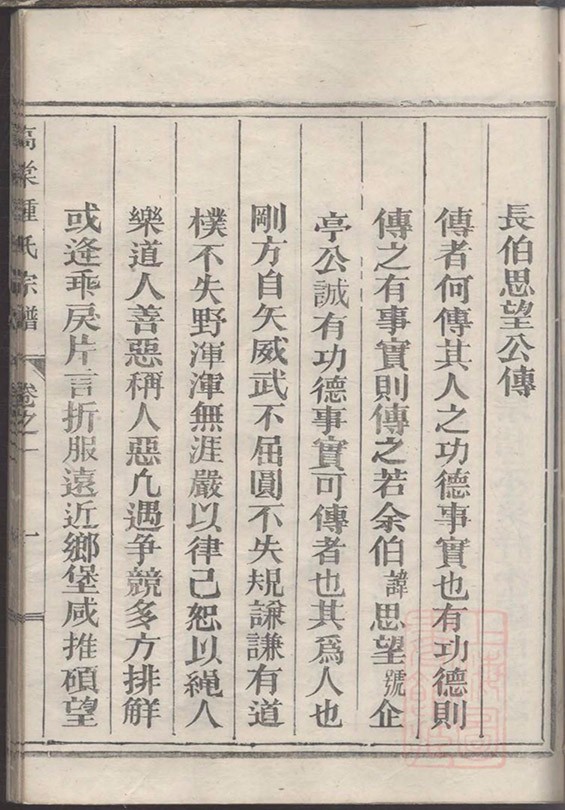 長伯思望公傳
傳者何傳其人之功德事實也有功德則
傳之有事實則傳之若余伯諱思望號企
亭公誠有功德事實可傳者也其爲人也
剛方自矢威武不屈圓不失規謙謙有道
樸不失野渾渾無涯嚴以律己恕以繩人
樂道人善惡稱人惡凢遇争競多方排觧
或逢乖戾片言折服遠近鄉堡咸推碩望
高棠鍾氏宗譜 卷之一 一